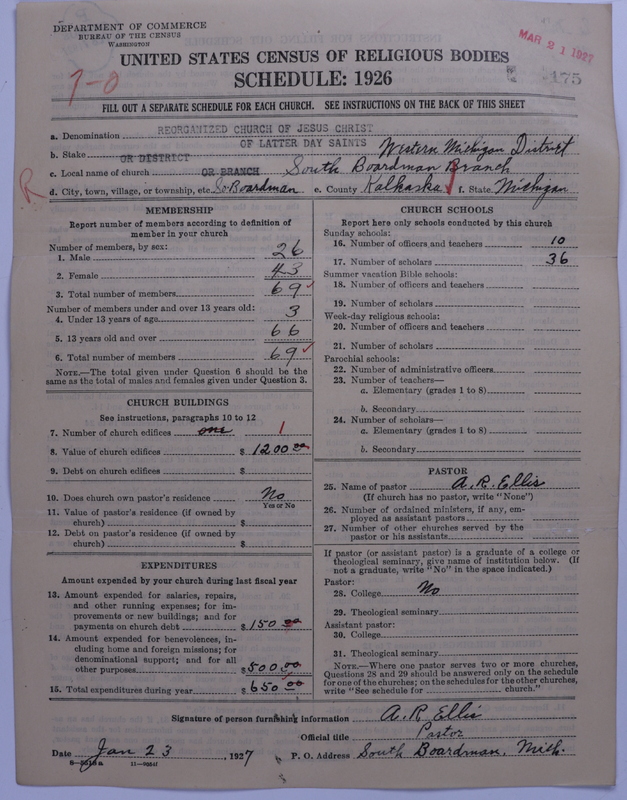 DEPARTMENT OF COMMERCE
BUREAU OF THE CENSUS
WASHINGTON
MAR 21 1927
UNITED STATES CENSUS OF RELIGIOUS BODIES
SCHEDULE: 1926
7-0
175
FILL OUT A SEPARATE SCHEDULE FOR EACH CHURCH. SEE INSTRUCTIONS ON THE BACK OF THIS SHEET
a. Denomination REORGANIZED CHURCH OF JESUS CHRIST
OF LATTER DAY SAINTS
b. Stake OR DISTRICT Western Michigan District
c. Local name of church OR BRANCH South Boardman Branch
R
d. City, town, village, or township, etc. So Boardman e. County Kalkaska f. State Michigan
MEMBERSHIP
Report number of members according to definition of
member in your church
Number of members, by sex:
1. Male 26
2. Female 43
3. Total number of members 69
Number of members under and over 13 years old:
4. Under 13 years of age 3
5. 13 years old and over 66
6. Total number of members 69
NOTE.—The total given under Question 6 should be the
same as the total of males and females given under Question 3.
CHURCH BUILDINGS
See instructions, paragraphs 10 to 12
7. Number of church edifices one 1
8. Value of church edifices $ 1200 00
9. Debt on church edifices $
10. Does church own pastor's residence No
Yes or No
11. Value of pastor's residence (if owned by
church) $
12. Debt on pastor's residence (if owned by
church) $
EXPENDITURES
Amount expended by your church during last fiscal year
13. Amount expended for salaries, repairs,
and other running expenses; for im-
provements or new buildings; and for
payments on church debt $ 150 00
14. Amount expended for benevolences, in-
cluding home and foreign missions; for
denominational support; and for all
other purposes $ 500 00
15. Total expenditures during year $ 650 00
CHURCH SCHOOLS
Report here only schools conducted by this church
Sunday schools:
16. Number of officers and teachers 10
17. Number of scholars 36
Summer vacation Bible schools:
18. Number of officers and teachers
19. Number of scholars
Week-day religious schools:
20. Number of officers and teachers
21. Number of scholars
Parochial schools:
22. Number of administrative officers
23. Number of teachers—
a. Elementary (grades 1 to 8)
b. Secondary
24. Number of scholars—
a. Elementary (grades 1 to 8)
b. Secondary
PASTOR
25. Name of pastor A. R. Ellis
(If church has no pastor, write "None")
26. Number of ordained ministers, if any, em-
ployed as assistant pastors
27. Number of other churches served by the
pastor or his assistants
If pastor (or assistant pastor) is a graduate of a college or
theological seminary, give name of institution below. (If
not a graduate, write "No" in the space indicated.)
Pastor:
28. College No
29. Theological seminary
Assistant pastor:
30. College
31. Theological seminary
NOTE.—Where one pastor serves two or more churches,
Questions 28 and 29 should be answered only on the schedule
for one of the churches; on the schedules for the other churches,
write "See schedule for church."
Signature of person furnishing information A. R. Ellis
Official title Pastor
Date Jan 23, 1927 P. O. Address South Boardman, Mich.
11—9664